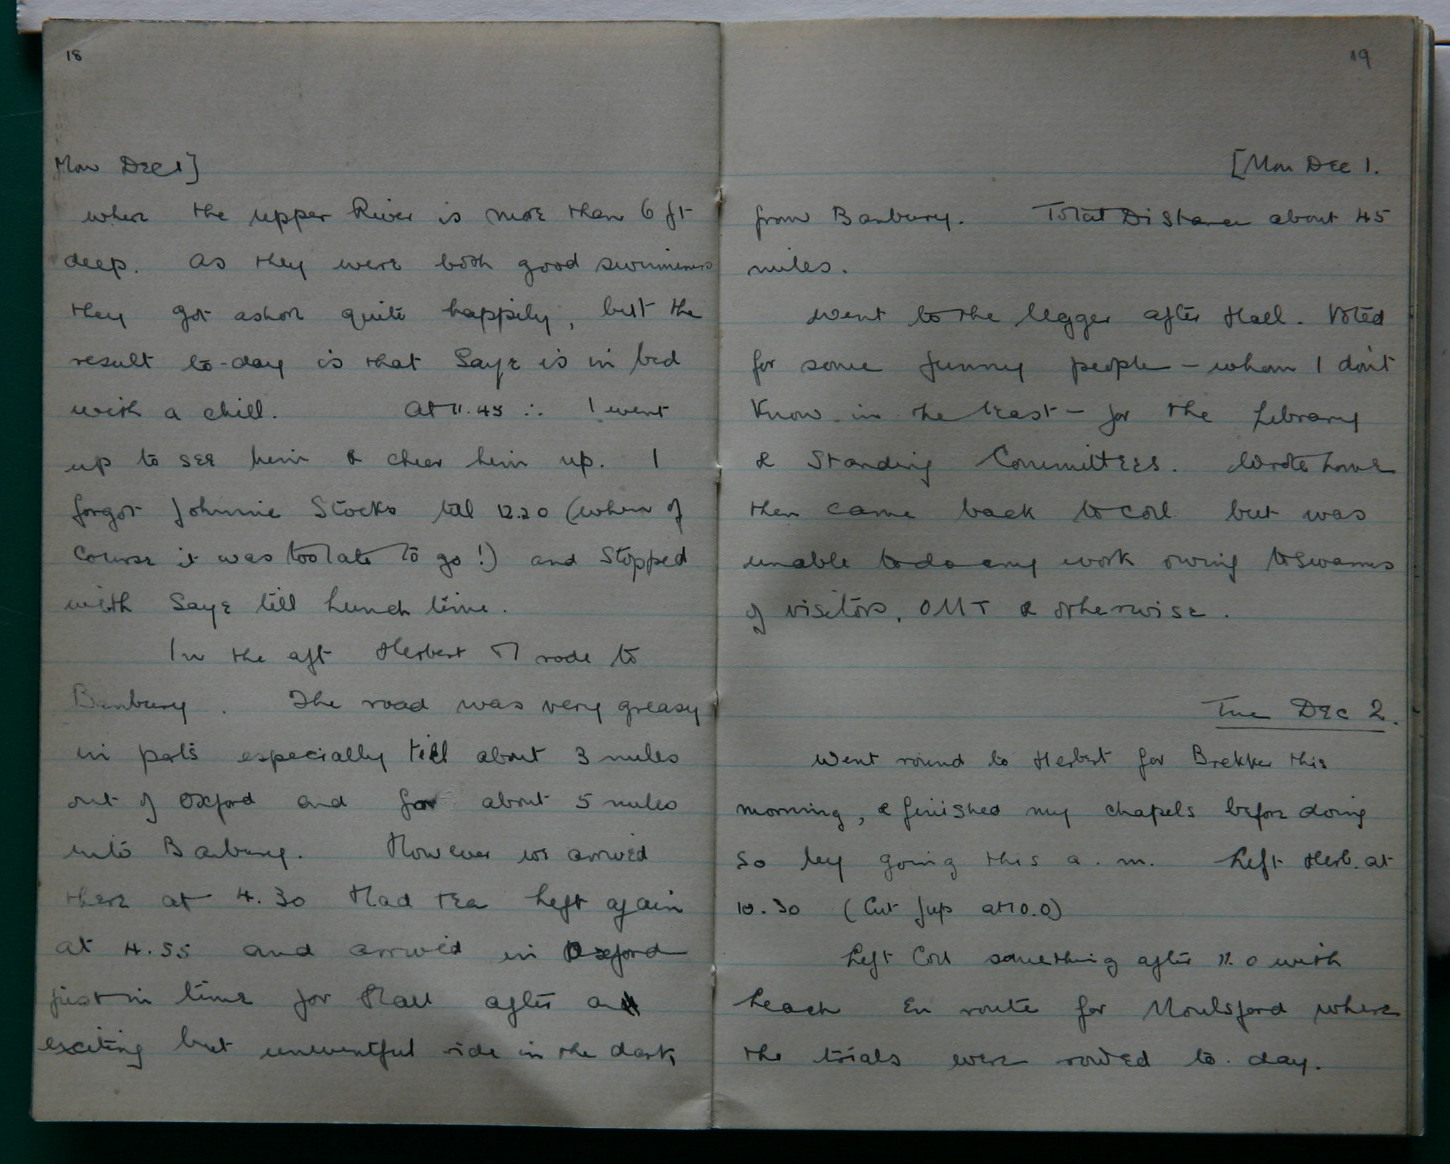 18
Mon Dec 1]
where the upper River is more than 6 ft
deep. As they were both good swimmers
they got ashore quite happily, but the
result to-day is that Saye is in bed
with a chill. At 11.45 ∴ I went
up to see him & cheer him up. I
forgot Johnnie Stocks till 12.20 (when of
course it was too late to go!) and stopped
with Saye till Lunch time.
In the aft Herbert & I rode to
Banbury. The road was very greasy
in parts especially till about 3 miles
out of Oxford and for about 5 miles
into Banbury. However we arrived
there at 4.30 Had tea Left again
at 4.55 and arrived in Oxford
just in time for Hall after an
exciting but uneventful ride in the dark
19
[Mon Dec 1.
from Banbury. Total Distance about 45
miles.
Went to the legger after Hall. Voted
for some funny people – whom I don't
know in the least – for the Library
& Standing Committees. Wrote home
then came back to Coll but was
unable to do any work owing to swarms
of visitors, OMT & otherwise.
Tue Dec 2.
Went round to Herbert for Brekker this
morning, & finished my chapels before doing
so by going this a.m. Left Herb. at
10.30 (Cut Jup at 10.0)
Left Coll something after 11.0 with
Leach En route for Moulsford where
the trials were rowed to-day.